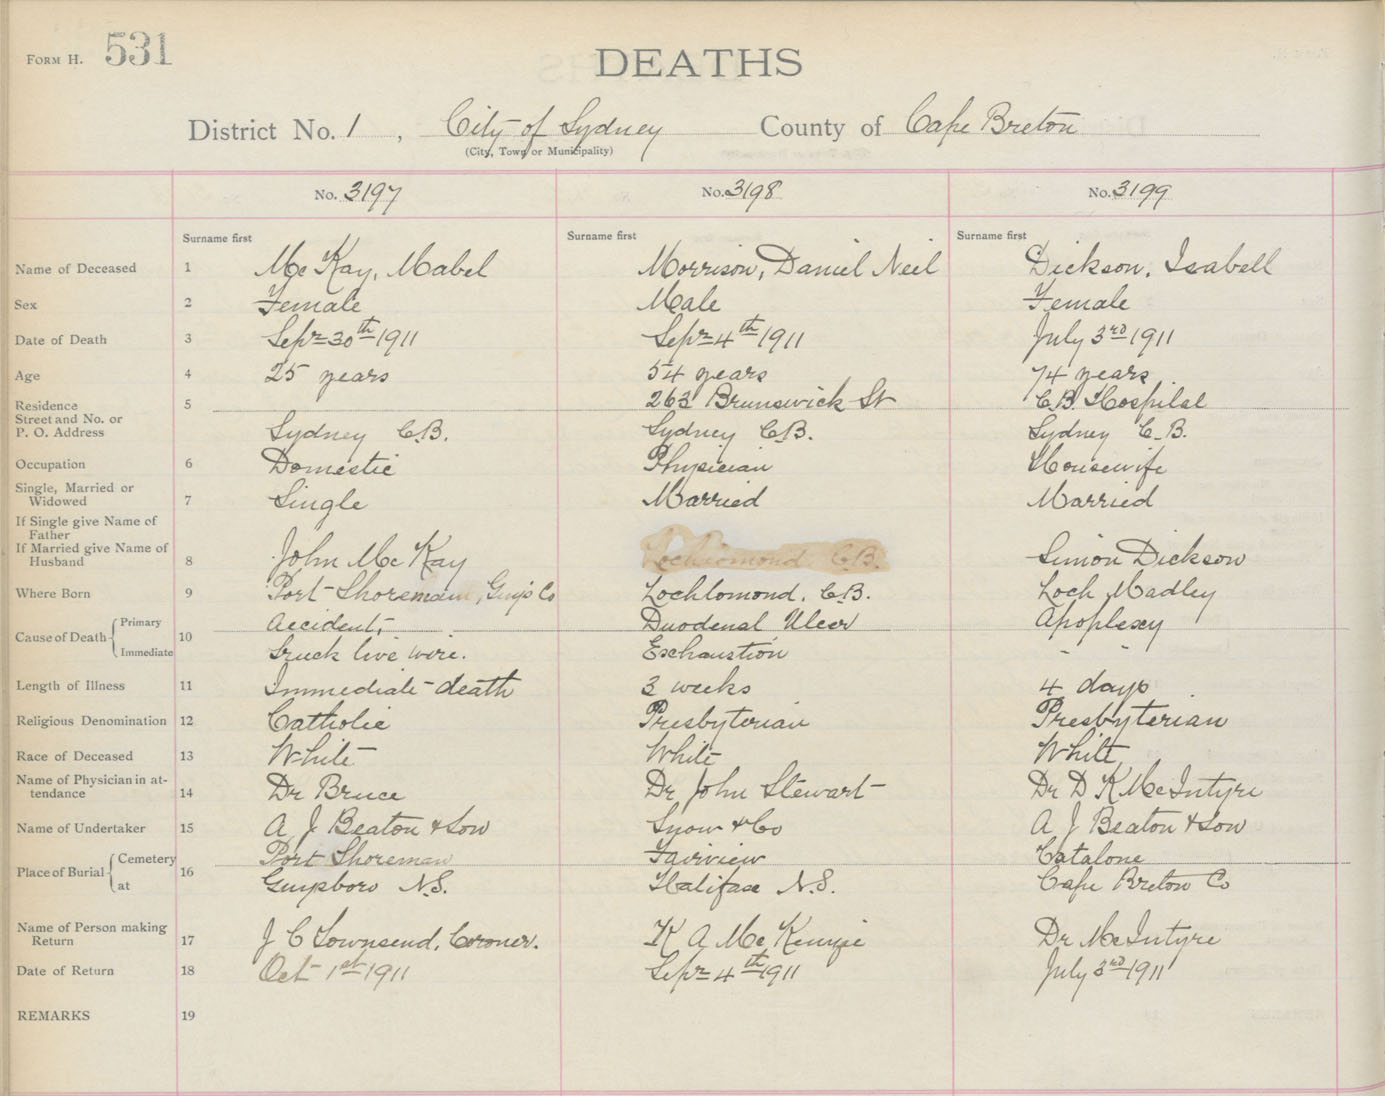 FORM H. 531
DEATHS
District No. 1, City of Sydney County of Cape Breton
(City, Town or Municipality)
No. 3197 No. 3198 No. 3199
Surname first Surname first Surname first
Name of Deceased 1 Mc Kay, Mabel Morrison, Daniel Neil Dickson, Isabell
Sex 2 Female Male Female
Date of Death 3 Sepr 30th 1911 Sepr 4th 1911 July 3rd 1911
Age 4 25 years 54 years 74 years
Residence 5 263 Brunswick St C.B. Hospital
Street and No. or
P. O. Address Sydney C.B. Sydney C.B. Sydney C.B.
Occupation 6 Domestic Physician Housewife
Single, Married or
Widowed 7 Single Married Married
If Single give Name of
Father
If Married give Name of
Husband 8 John Mc Kay Lochlomond C.B. Simon Dickson
Where Born 9 Port Shoreman, Guys Co Lochlomond, C.B. Loch Madley
Cause of Death Primary 10 Accident, Duodenal Ulcer Apoplexy
Immediate Struck live wire. Exhaustion - -
Length of Illness 11 Immediate death 3 weeks 4 days
Religious Denomination 12 Catholic Presbyterian Presbyterian
Race of Deceased 13 White White White
Name of Physician in at-
tendance 14 Dr Bruce Dr John Stewart Dr D K McIntyre
Name of Undertaker 15 A J Beaton & Son Snow & Co A J Beaton & Son
Place of Burial Cemetery 16 Port Shoreman Fairview Catalone
at Guysboro N.S. Halifax N.S. Cape Breton Co
Name of Person making
Return 17 J C Townsend, Coroner. K A McKenzie Dr McIntyre
Date of Return 18 Oct 1st 1911 Sepr 4th 1911 July 3rd 1911
REMARKS 19